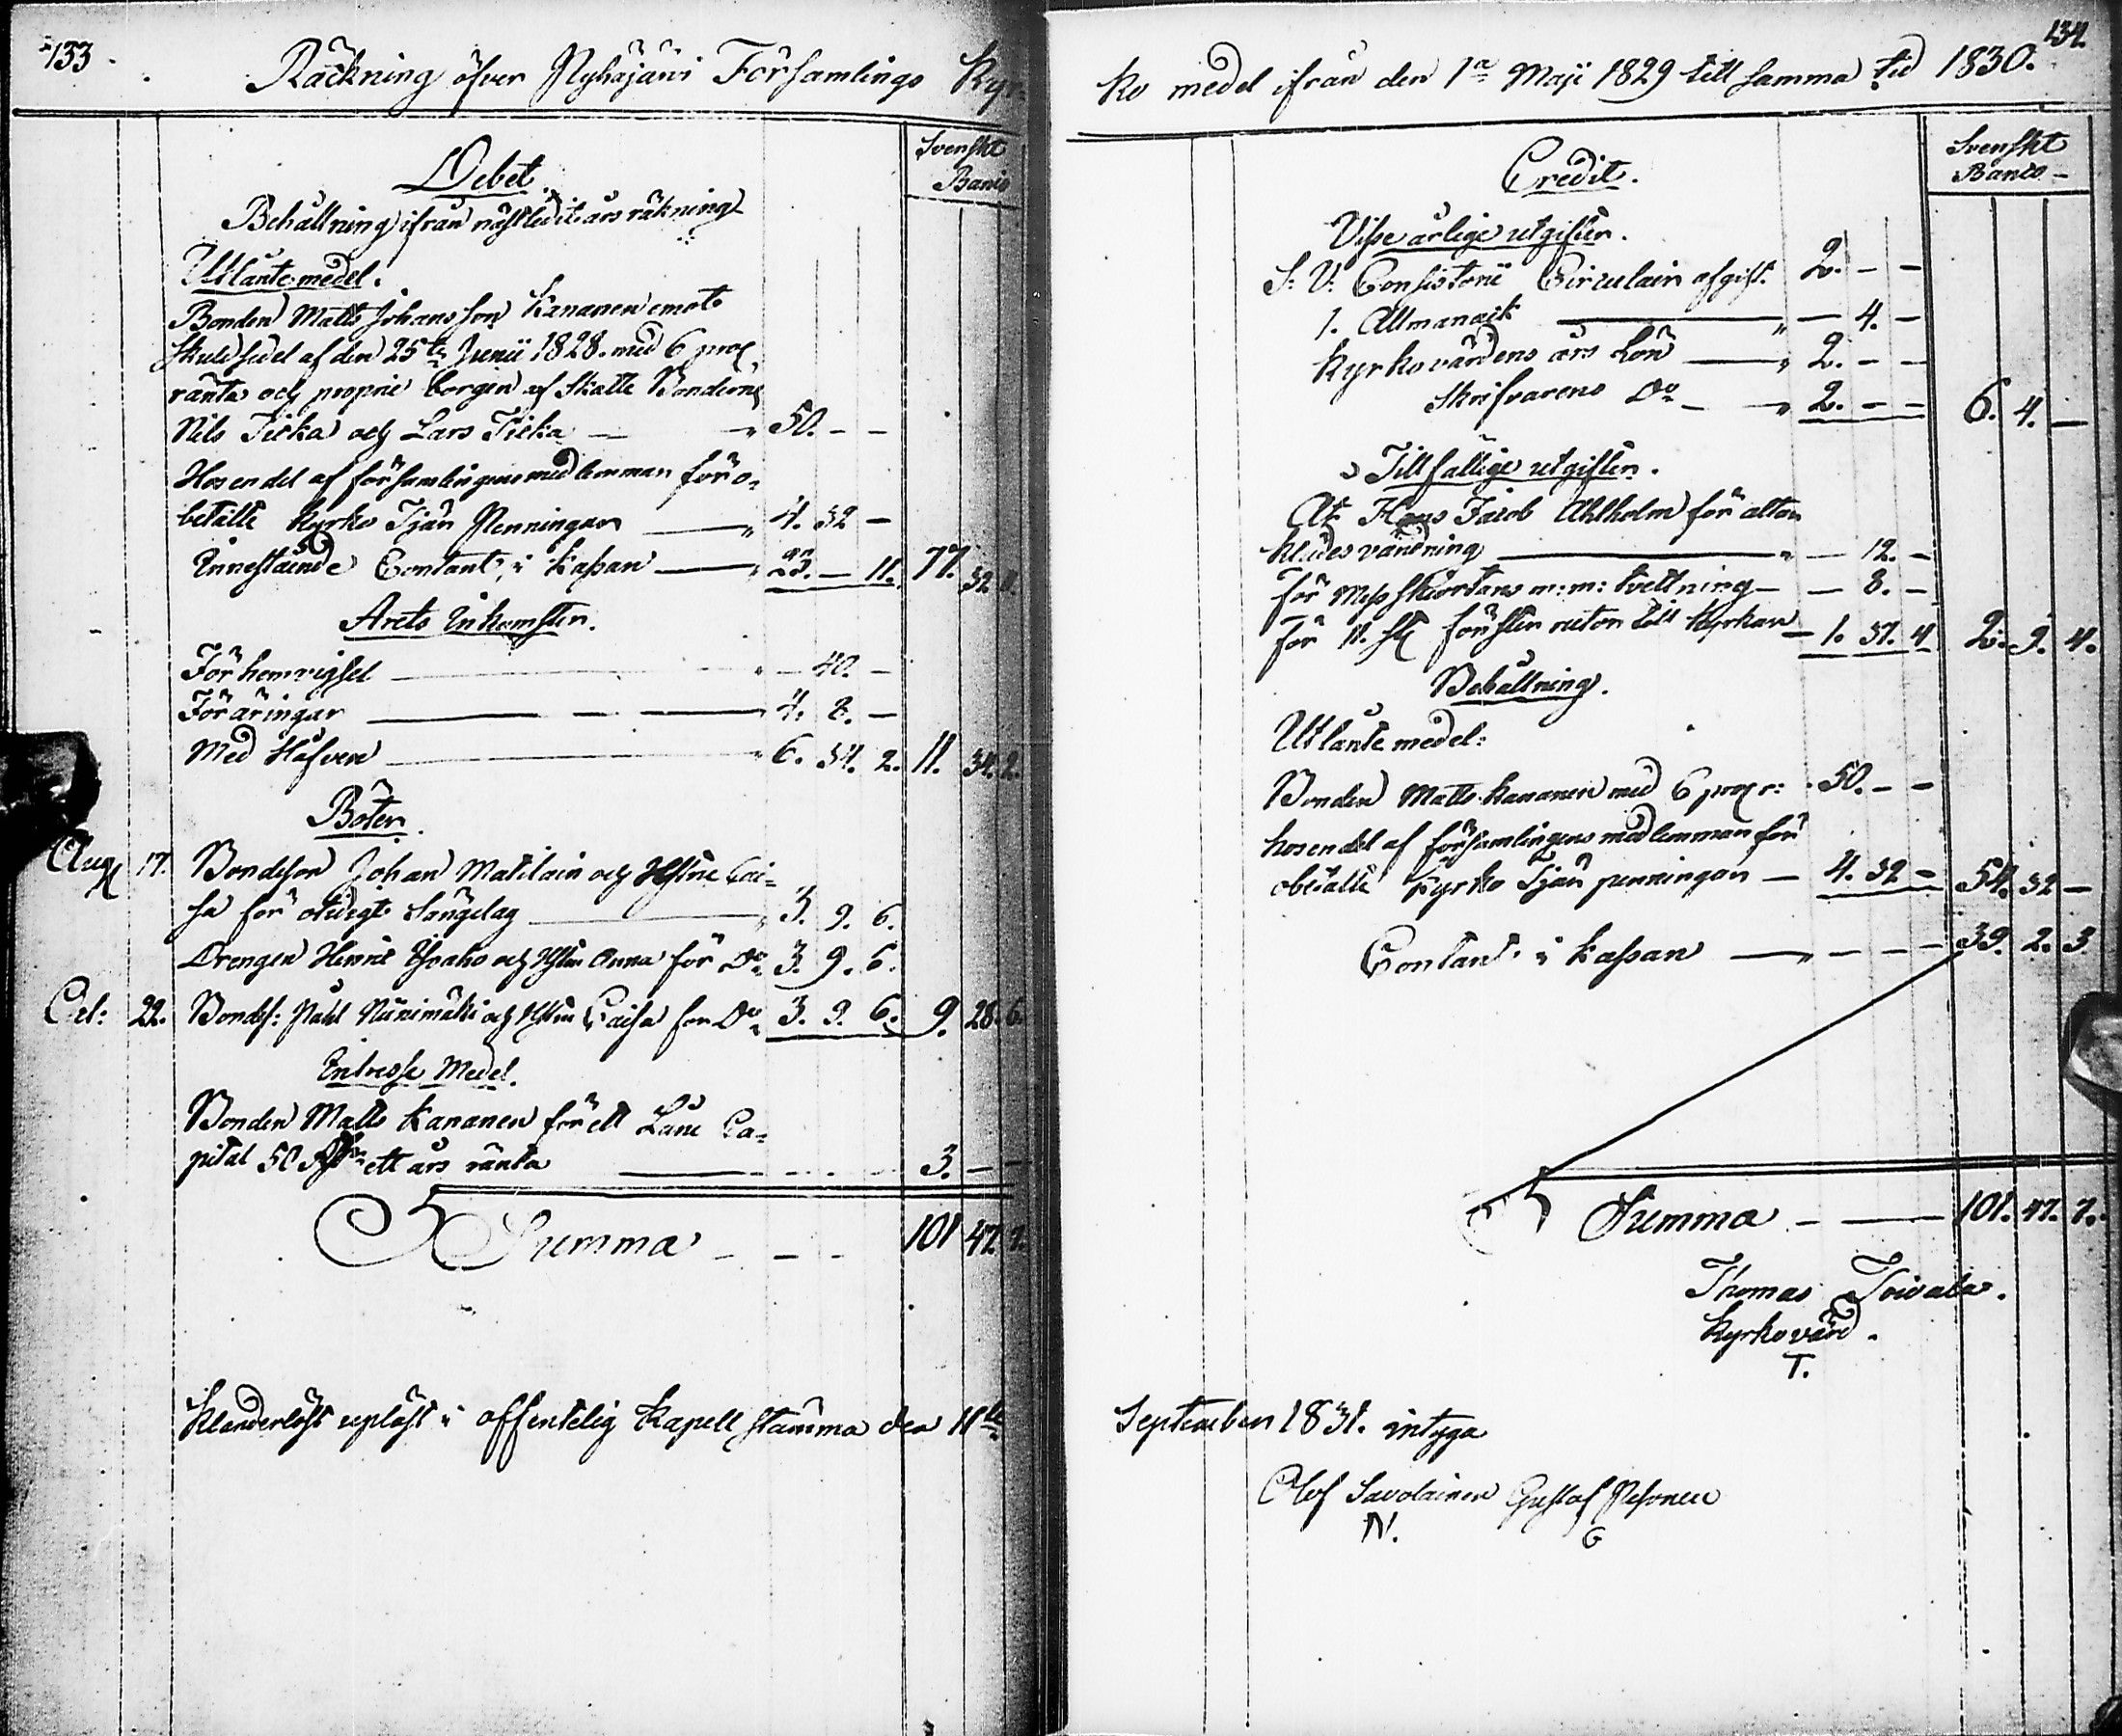 133
Räckning öfver Pyhäjärvi Församlings Kyr-
Debet.
Svenskt
Banco
Behållning ifrån nästledit års räkning
Utlånte medel.
Bonden Matts Johansson Kananen emot
Skuldsedel af den 25te Junii 1828. med 6 proc
ränta och proprie borgen af Skatte Bönderne
Nils Tikka och Lars Tikka — " 50. - -
Hos en del af församlingens medlemmar för o-
betalte Kyrko Tjän Penningar — " 4. 32 -
Innestående Contant i Kassan — " 23. - 11. 77. 32 11.
Årets Inkomster.
För hemvigsel — " - 40. -
Föräringar — 4. 8. -
Med Håfven — " 6. 34. 2. 11. 34. 2.
Böter.
Aug 17. Bondeson Johan Matilain och Hustru Cai-
sa för otidigt Sängelag — " 3. 9. 6.
Drengen Henric Ahaho och Hustru Anna för Do 3. 9. 6.
Oct: 22. Bondes: Påhl Niinimäki och Hustru Caisa för Do 3. 9. 6. 9. 28. 6.
Intresse Medel.
Bonden Matts Kananen för ett Låne Ca-
pital 50 Rdr ett års ränta — 3. - -
Summa - - - 101 47. 7.
Klanderlöst upläst i offentelig Kapell stämma den 11te
134.
ko medel ifrån den 1a Maji 1829 till samma tid 1830.
Credit.
Svenskt
Banco -
Visse årlige utgifter.
S: V: Consistorii Circulair afgift. 2. - -
1. Allmanack — " - 4. -
Kyrkovärdens års Lön — " 2. - -
Skrifvarens Do - — " 2. - - 6. 4. -
Tillfällige utgifter.
At Hans Jacob Ahlholm för altar
klädes vändning — " - 12. -
För Mess skiortans m: m: tvettning - - 8. -
För 11. st fönster rutor till Kyrkan - 1. 37. 4 2. 9. 4.
Behållning.
Utlånte medel:
Bonden Matts Kananen med 6 proc r: 50. - -
hos en del af församlingens medlemmar för
obetalte Kyrko Tjän penningar — 4. 32 - 54. 32 -
Contant i Kassan — " - - - 39. 2. 3.
Summa - — 101. 47. 7.
Thomas Toivala.
Kyrkovärd.
T.
September 1831. intyga
Olof Savolainen Gustaf Pesonen
N. G